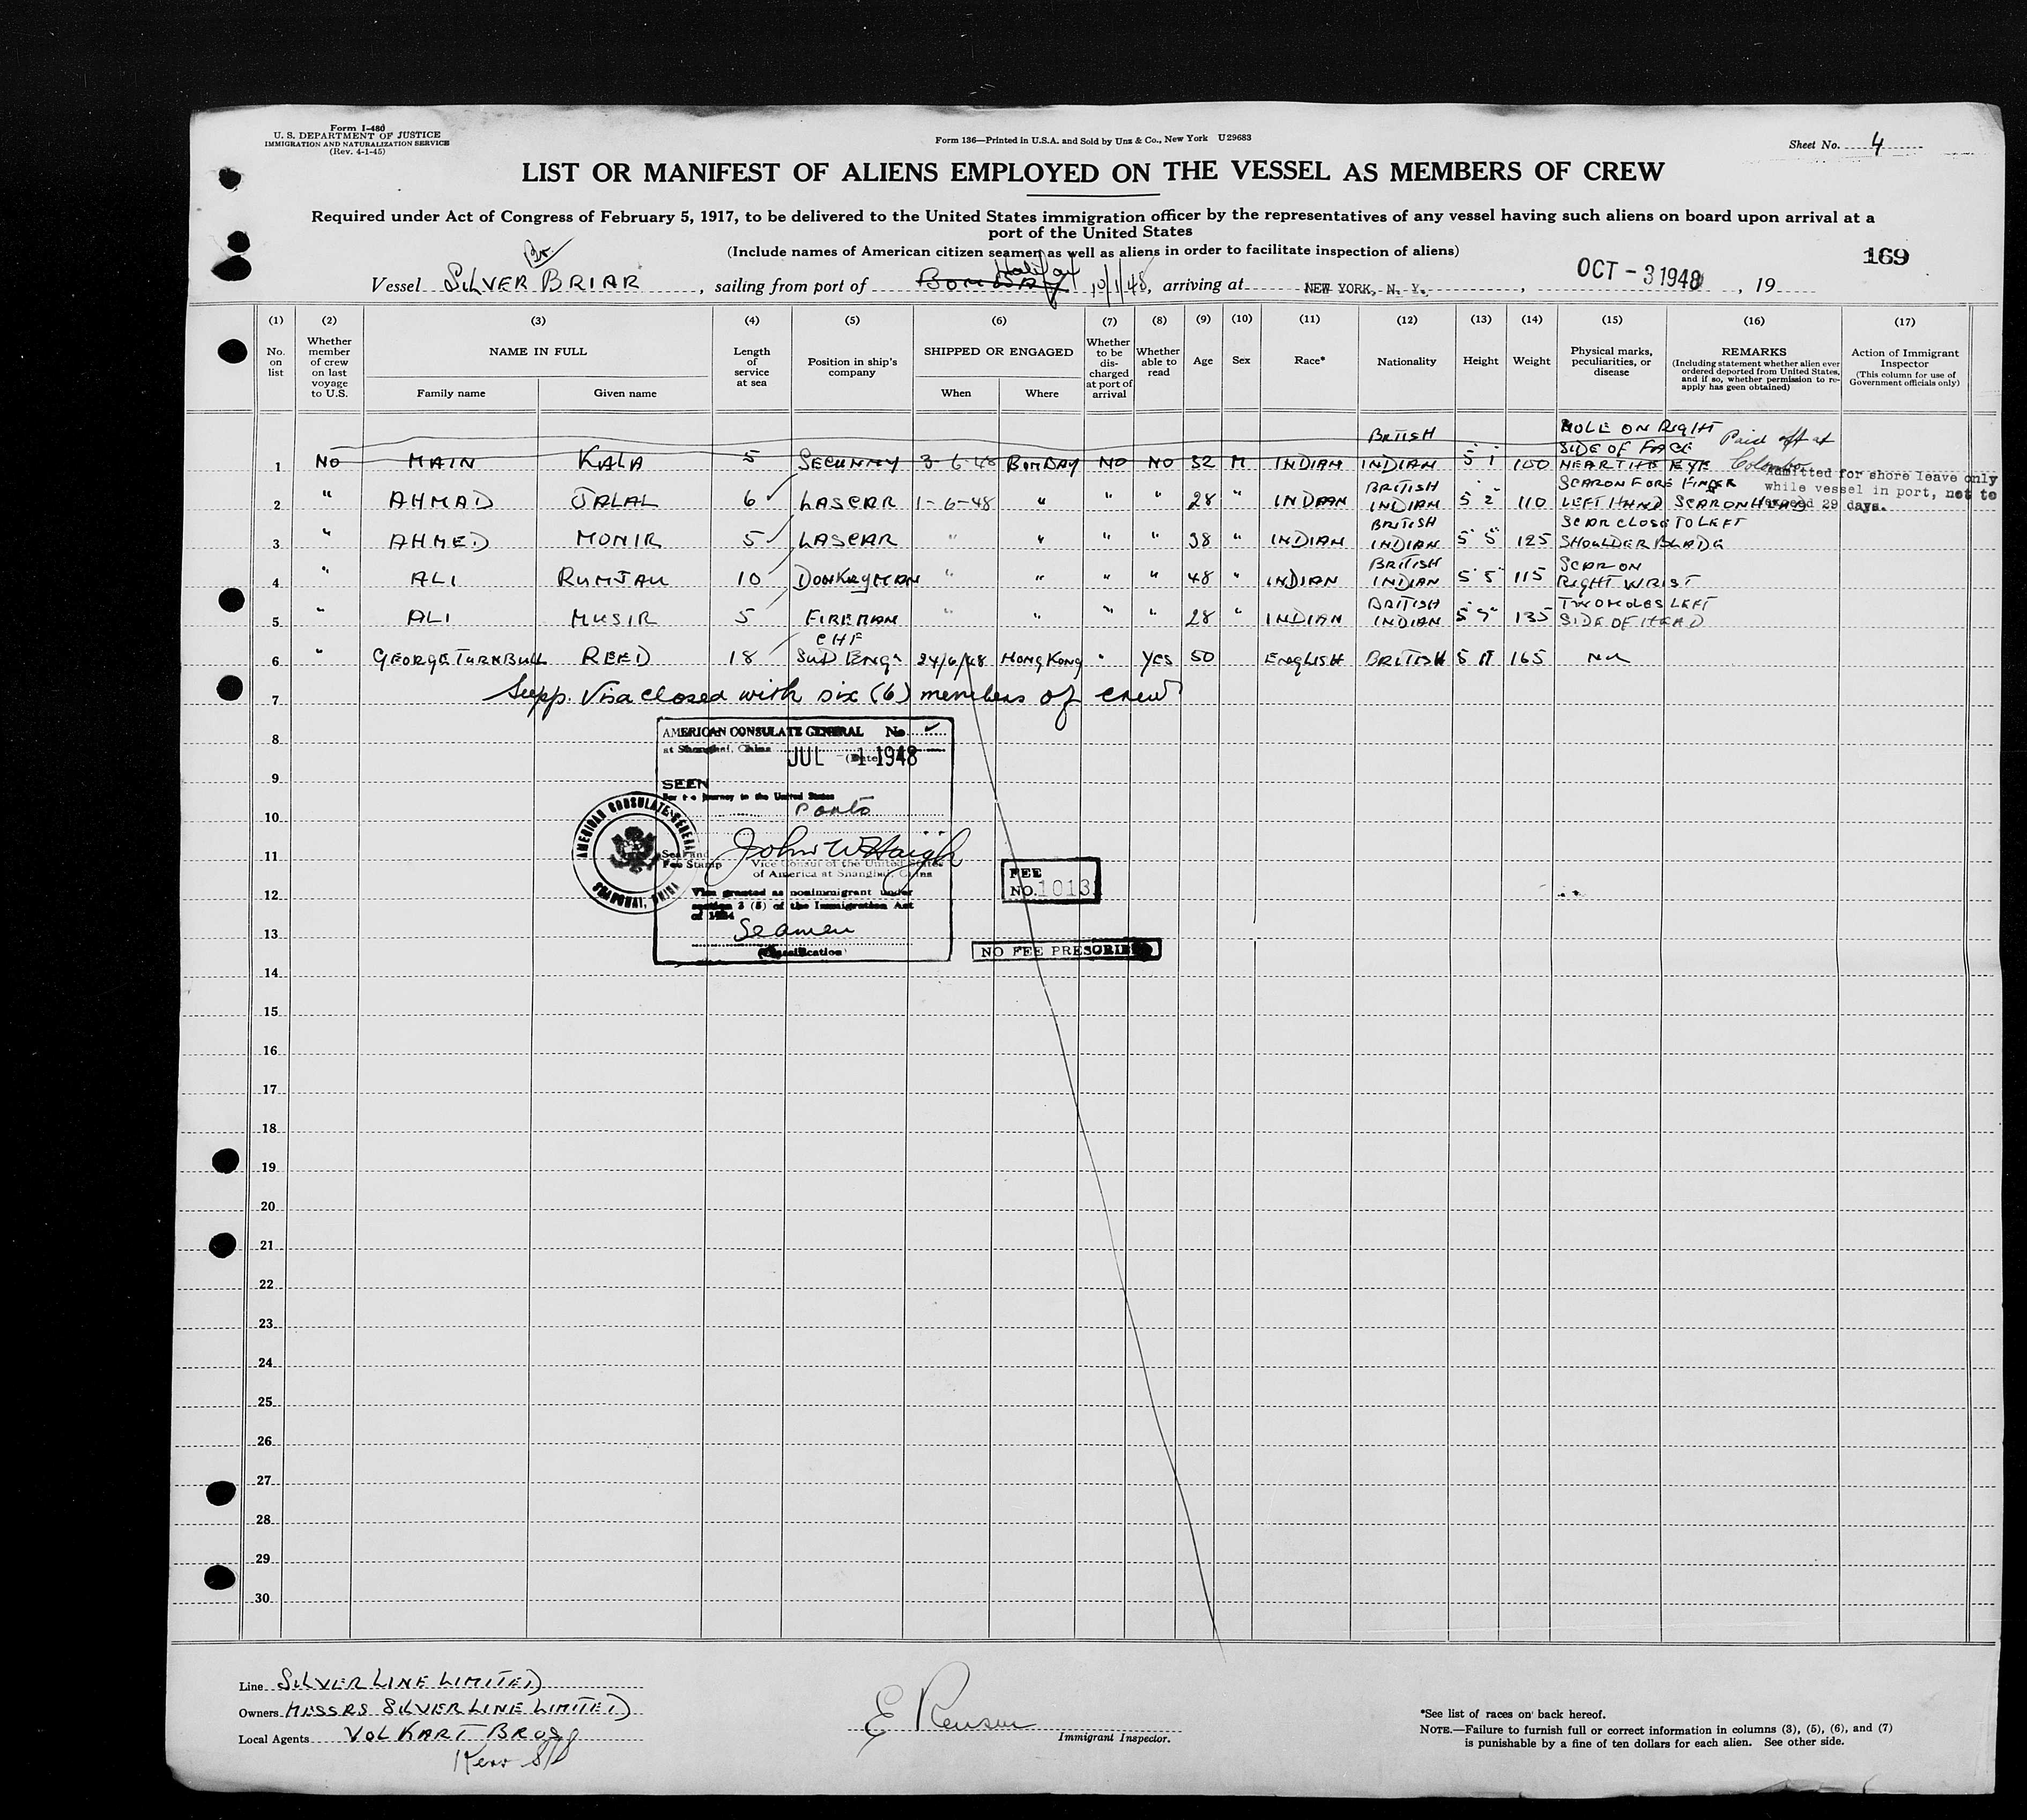 Form I-480
U. S. DEPARTMENT OF JUSTICE
IMMIGRATION AND NATURALIZATION SERVICE
(Rev. 4-1-45)
Form 136—Printed in U.S.A. and Sold by Unz & Co., New York U29683
Sheet No. 4
LIST OR MANIFEST OF ALIENS EMPLOYED ON THE VESSEL AS MEMBERS OF CREW
Required under Act of Congress of February 5, 1917, to be delivered to the United States immigration officer by the representatives of any vessel having such aliens on board upon arrival at a
port of the United States
(Include names of American citizen seamen as well as aliens in order to facilitate inspection of aliens)
169
Br
Vessel SILVER BRIAR, sailing from port of BOMBAY Halifax 10/1/48, arriving at NEW YORK, N. Y., OCT - 3 1948, 19
(1) (2) (3) (4) (5) (6) (7) (8) (9) (10) (11) (12) (13) (14) (15) (16) (17)
No. on list
Whether member of crew on last voyage to U.S.
NAME IN FULL
Family name
Given name
Length of service at sea
Position in ship's company
SHIPPED OR ENGAGED
When
Where
Whether to be discharged at port of arrival
Whether able to read
Age
Sex
Race*
Nationality
Height
Weight
Physical marks, peculiarities, or disease
REMARKS
(Including statement whether alien ever ordered deported from United States, and if so, whether permission to reapply has geen obtained)
Action of Immigrant Inspector
(This column for use of Government officials only)
1 NO MAIN KALA 5 SECUNNY 3-6-48 BOMBAY NO NO 32 M INDIAN BRITISH INDIAN 5 1 100 MOLE ON RIGHT SIDE OF FACE NEAR THE EYE Paid off at Colombo
Admitted for shore leave only
while vessel in port, not to
exceed 29 days.
2 " AHMAD JALAL 6 LASCAR 1-6-48 " " " 28 " INDIAN BRITISH INDIAN 5 2 110 SCAR ON FORE FINGER LEFT HAND SCAR ON HEAD
3 " AHMED MONIR 5 LASCAR " " " " 38 " INDIAN BRITISH INDIAN 5 5 125 SCAR CLOSE TO LEFT SHOULDER BLADE
4 " ALI RUMJAN 10 DONKEYMAN " " " " 48 " INDIAN BRITISH INDIAN 5 5 115 SCAR ON RIGHT WRIST
5 " ALI MUSIR 5 FIREMAN " " " " 28 " INDIAN BRITISH INDIAN 5 7 135 TWO MOLES LEFT SIDE OF HEAD
6 " GEORGE TURNBULL REED 18 CHF 24/6/48 HONG KONG " YES 50 ENGLISH BRITISH 5 11 165 NIL
7 Supp. Visa closed with six (6) members of crew
8
9
10
11
12
13
14
15
16
17
18
19
20
21
22
23
24
25
26
27
28
29
30
AMERICAN CONSULATE GENERAL No
at Shanghai, China
JUL - 1 1948
(Date)
SEEN
For the journey to the United States
Ports
John W Haigh
Seal and
Fee Stamp
Vice Consul of the United States
of America at Shanghai, China
Visa granted as nonimmigrant under
section 3 (5) of the Immigration Act
of 1924
Seamen
(Classification)
AMERICAN CONSULATE GENERAL
SHANGHAI, CHINA
FEE
NO. 1013
NO FEE PRESCRIBED
Line SILVER LINE LIMITED
Owners MESSRS SILVER LINE LIMITED
Local Agents VOLKART BROS
Kerr S/S
Immigrant Inspector.
*See list of races on back hereof.
NOTE.—Failure to furnish full or correct information in columns (3), (5), (6), and (7)
is punishable by a fine of ten dollars for each alien. See other side.